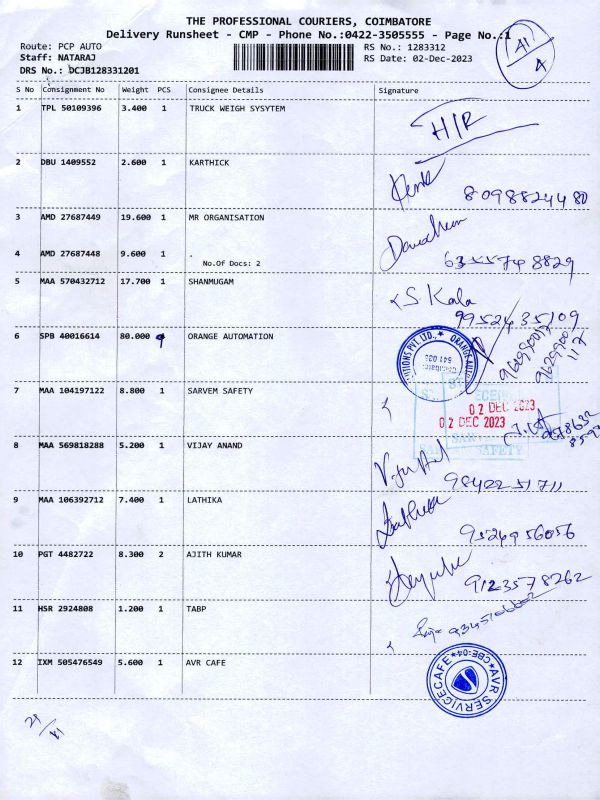 THE PROFESSIONAL COURIERS, COIMBATORE
Delivery Runsheet - CMP - Phone No.:0422-3505555 - Page No.:1
Route: PCP AUTO
RS No.: 1283312
Staff: NATARAJ
RS Date: 02-Dec-2023
DRS No.: DCJB128331201
A11
4
S No Consignment No Weight PCS Consignee Details Signature
1 TPL 50109396 3.400 1 TRUCK WEIGH SYSYTEM H/R
2 DBU 1409552 2.600 1 KARTHICK
8098824480
3 AMD 27687449 19.600 1 MR ORGANISATION
4 AMD 27687448 9.600 1 .
No.Of Docs: 2
6355748829
5 MAA 570432712 17.700 1 SHANMUGAM S Kala
9952435109
6 SPB 40016614 80.000 9 ORANGE AUTOMATION
7 MAA 104197122 8.800 1 SARVEM SAFETY
02 DEC 2023
02 DEC 2023
8 MAA 569818288 5.200 1 VIJAY ANAND
9842251711
9 MAA 106392712 7.400 1 LATHIKA
9526956056
10 PGT 4482722 8.300 2 AJITH KUMAR
9123578262
11 HSR 2924808 1.200 1 TABP
12 IXM 505476549 5.600 1 AVR CAFE
AVR SERVICECAFE CBE-04